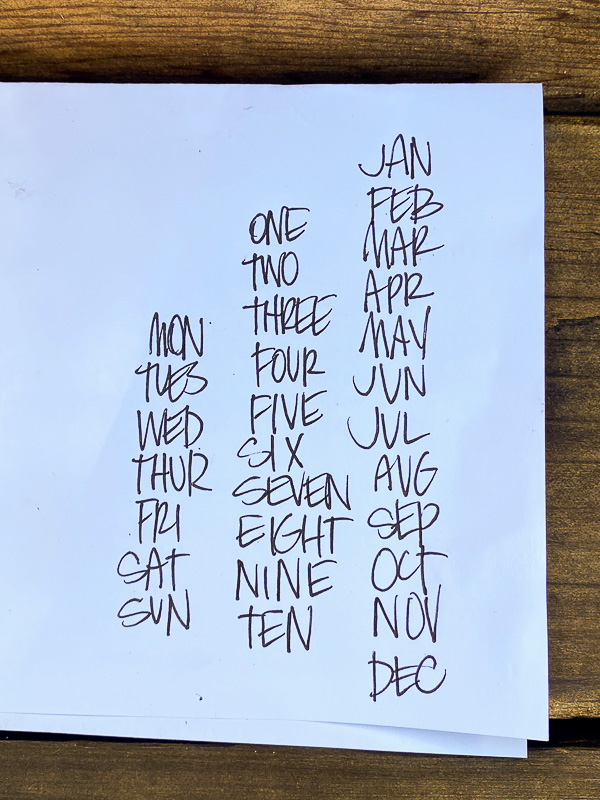 MON
TUES
WED
THUR
FRI
SAT
SUN
ONE
TWO
THREE
FOUR
FIVE
SIX
SEVEN
EIGHT
NINE
TEN
JAN
FEB
MAR
APR
MAY
JUN
JUL
AUG
SEP
OCT
NOV
DEC